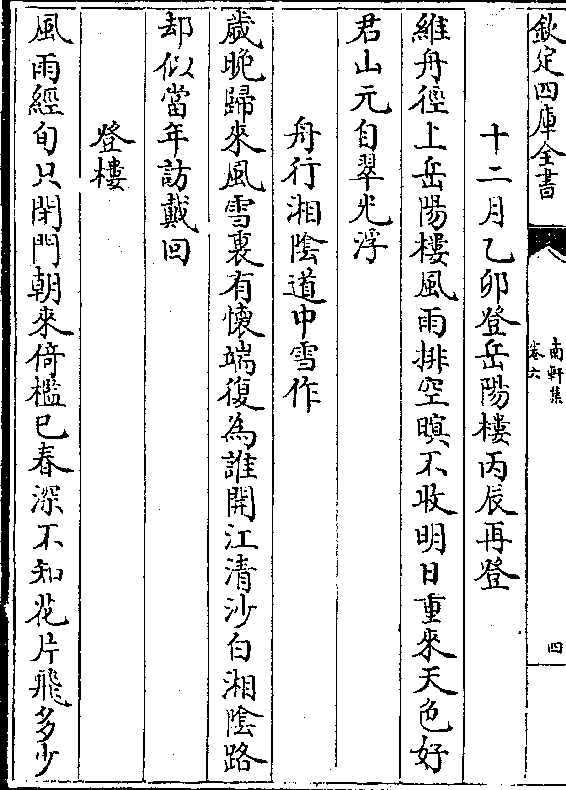 欽定四庫全書
南軒集
卷六
四
十二月乙卯登岳陽樓丙辰再登
維舟徑上岳陽樓風雨排空暝不收明日重來天色好
君山元自翠光浮
舟行湘陰道中雪作
歲晚歸來風雪裏有懷端復為誰開江清沙白湘陰路
却似當年訪戴回
登樓
風雨經旬只閉門朝來倚檻已春深不知花片飛多少